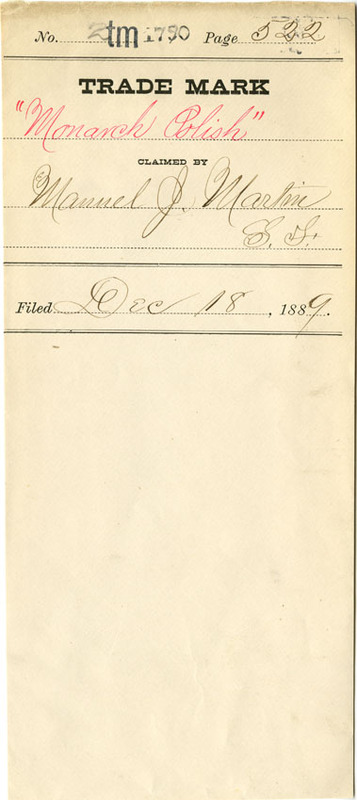 No. tm 1750 Page 522
TRADE MARK
"Monarch Polish"
CLAIMED BY
Manuel J. Martin
S. F.
Filed Dec 18, 1889.